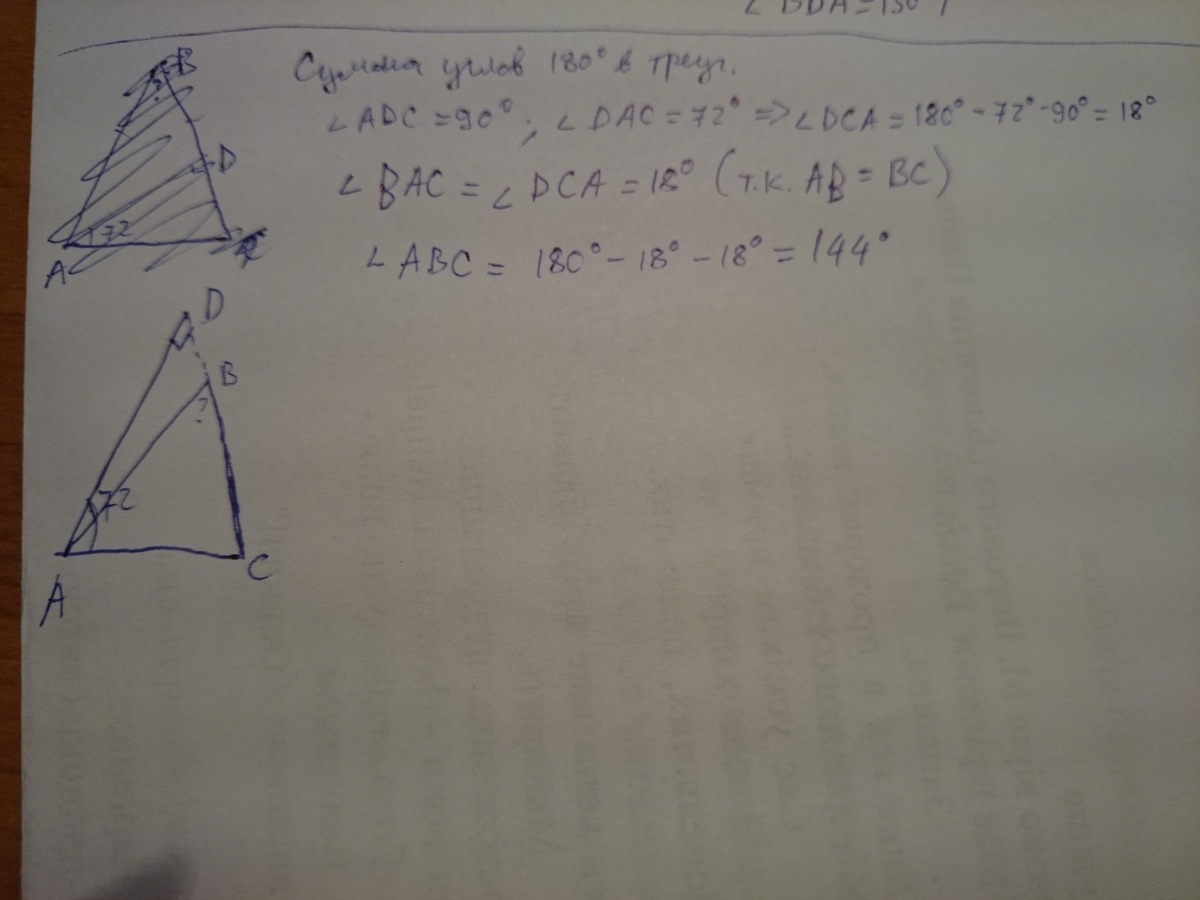 ∠ BDA = 150°
Сумма углов 180° в треуг.
∠ ADC = 90°; ∠ DAC = 72° => ∠ DCA = 180° - 72° - 90° = 18°
∠ BAC = ∠ DCA = 18° (т.к. AB = BC)
∠ ABC = 180° - 18° - 18° = 144°
B
D
72
A
D
B
?
72
C
A